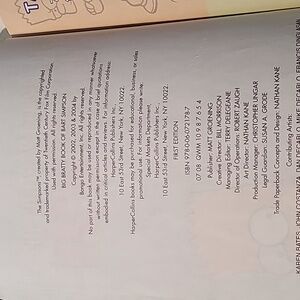 The Simpsons™, created by Matt Groening, is the copyrighted
and trademarked property of Twentieth Century Fox Film Corporation.
Used with permission. All rights reserved.
BIG BRATTY BOOK OF BART SIMPSON
Copyright © 2002, 2003 & 2004 by
Bongo Entertainment, Inc. All rights reserved.
No part of this book may be used or reproduced in any manner whatsoever
without written permission except in the case of brief quotations
embodied in critical articles and reviews. For information address
HarperCollins Publishers, Inc.
10 East 53rd Street, New York, NY 10022.
HarperCollins books may be purchased for educational, business, or sales
promotional use. For information, please write:
Special Markets Department,
HarperCollins Publishers, Inc.
10 East 53rd Street, New York, NY 10022.
FIRST EDITION
ISBN 978-0-06-072178-7
07 08 QWM 10 9 8 7 6 5 4
Publisher: MATT GROENING
Creative Director: BILL MORRISON
Managing Editor: TERRY DELEGEANE
Director of Operations: ROBERT ZAUGH
Art Director: NATHAN KANE
Production Manager: CHRISTOPHER UNGAR
Legal Guardian: SUSAN A. GRODE
Trade Paperback Concepts and Design: NATHAN KANE
Contributing Artists:
KAREN BATES, JOHN COSTANZA,